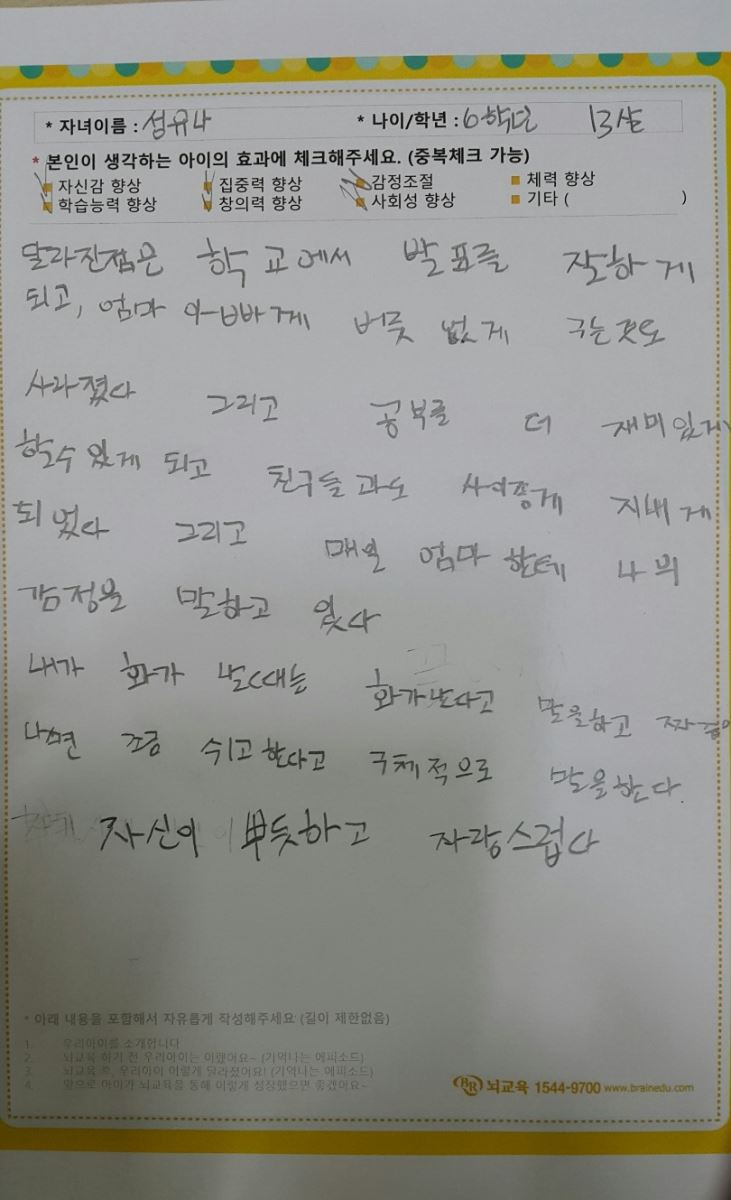 * 자녀이름 : 섬유나 * 나이/학년 : 6학년 13살
* 본인이 생각하는 아이의 효과에 체크해주세요. (중복체크 가능)
자신감 향상 집중력 향상 감정조절 체력 향상
학습능력 향상 창의력 향상 사회성 향상 기타 ( )
달라진점은 학교에서 발표를 잘하게
되고, 엄마 아빠께 버릇 없게 구는것도
사라졌다 그리고 공부를 더 재미있게
할수 있게 되고 친구들과도 사이좋게 지내게
되었다 그리고 매일 엄마한테 나의
감정을 말하고 있다
내가 화가 날때는 화가난다고 말을하고 짜증이
나면 조금 쉬고한다고 구체적으로 말을한다.
자신이 뿌듯하고 자랑스럽다
* 아래 내용을 포함해서 자유롭게 작성해주세요 (길이 제한없음)
1. 우리아이를 소개합니다
2. 뇌교육 하기 전 우리아이는 이랬어요~ (기억나는 에피소드)
3. 뇌교육 후, 우리아이 이렇게 달라졌어요! (기억나는 에피소드)
4. 앞으로 아이가 뇌교육을 통해 이렇게 성장했으면 좋겠어요~
BR 뇌교육 1544-9700 www.brainedu.com